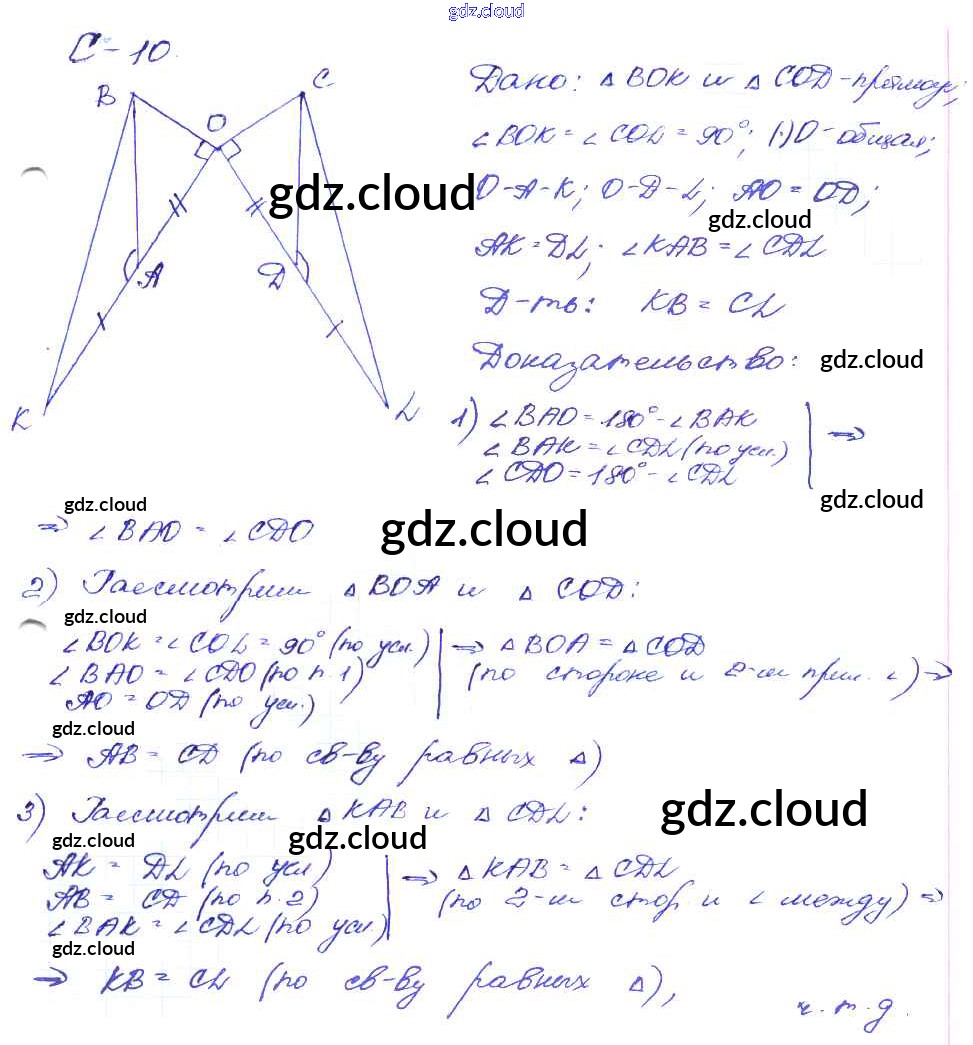 gdz.cloud
С-10.
B C O A D K L
Дано: △ BOK и △ COD-прямоуг;
∠BOK = ∠COL = 90°; (·)O-общая;
O-A-K; O-D-L; AO = OD;
gdz.cloud
gdz.cloud
AK = DL; ∠KAB = ∠CDL
Д-ть: KB = CL
Доказательство:
gdz.cloud
1) ∠BAO = 180° - ∠BAK
∠BAK = ∠CDL (по усл.) ⇒
∠CDO = 180° - ∠CDL
gdz.cloud
gdz.cloud
gdz.cloud
⇒ ∠BAO = ∠CDO
2) Рассмотрим △BOA и △ COD:
gdz.cloud
∠BOK = ∠COL = 90° (по усл.) ⇒ △BOA = △COD
∠BAO = ∠CDO (по п.1) (по стороне и 2-м прил. ∠) ⇒
AO = OD (по усл.)
gdz.cloud
⇒ AB = CD (по св-ву равных △)
3) Рассмотрим △KAB и △ CDL:
gdz.cloud
gdz.cloud
gdz.cloud
AK = DL (по усл) ⇒ △KAB = △CDL
AB = CD (по п.2) (по 2-м стор. и ∠ между) ⇒
∠BAK = ∠CDL (по усл.)
gdz.cloud
⇒ KB = CL (по св-ву равных △),
ч.т.д.